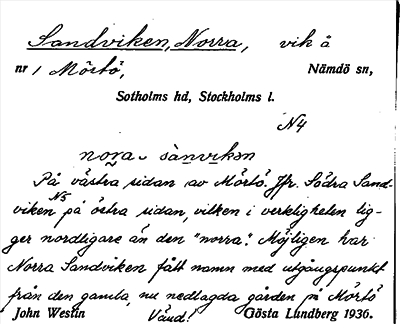 Sandviken, Norra, vik å
nr 1 Mörtö, Nämdö sn,
Sotholms hd, Stockholms l.
N4
nora- sànvikən
På västra sidan av Mörtö. Jfr. Södra Sand-
N5
viken på östra sidan, vilken i verkligheten lig-
ger nordligare än den "norra". Möjligen har
Norra Sandviken fått namn med utgångspunkt
från den gamla, nu nedlagda gården på Mörtö
John Westin Vänd! Gösta Lundberg 1936.